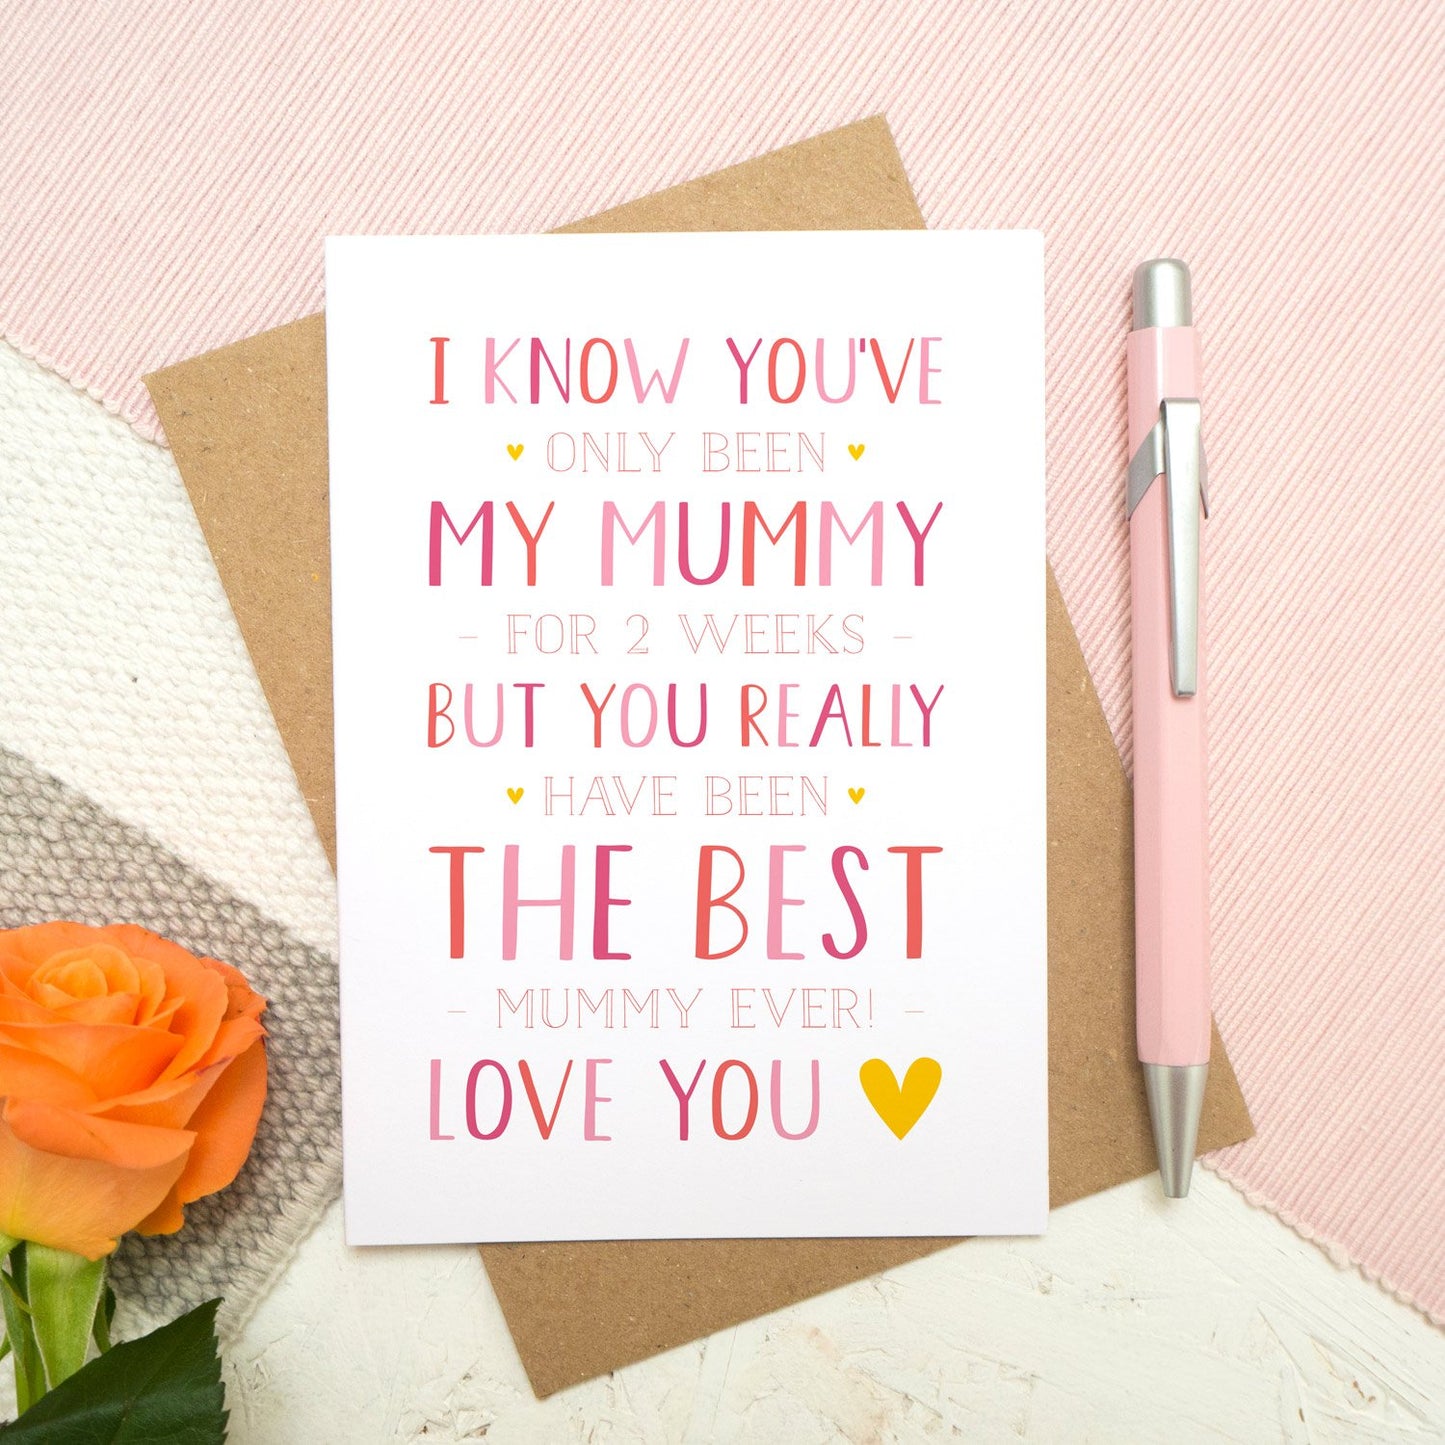 I KNOW YOU'VE
ONLY BEEN
MY MUMMY
- FOR 2 WEEKS -
BUT YOU REALLY
HAVE BEEN
THE BEST
- MUMMY EVER! -
LOVE YOU